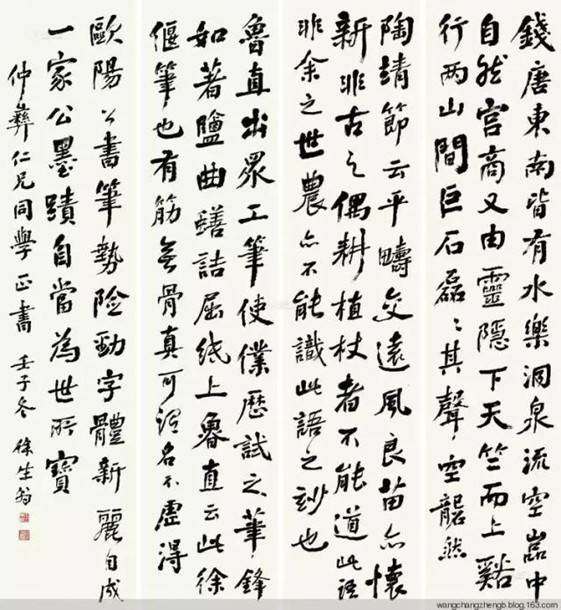 錢唐東南皆有水樂洞泉流空嵓中
自然宫商又由靈隱下天竺而上谿
行两山間巨石磊〻其聲空礲然
陶靖節云平疇交遠風良苗亦懷
新非古之偶耕植杖者不能道此語
非余之世農亦不能識此語之玅也
魯直出眾工筆使僕歷試之筆鋒
如著鹽曲蟮詰屈紙上魯直云此徐
偃筆也有筋无骨真可謂名不虛得
歐陽公書筆勢險勁字體新麗自成
一家公墨蹟自當為世所寶
仲彝仁兄同學正書 壬子冬 徐生翁
wangchangzhengb.blog.163.com